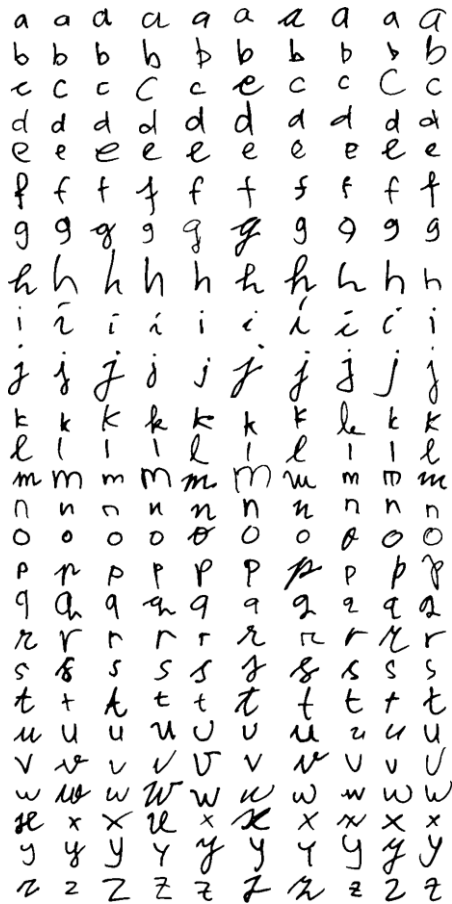 a a a a a a a a a a
b b b b b b b b b b
c c c C c c c c C c
d d d d d d d d d d
e e e e e e e e e e
f f f f f f f f f f
g g g g g g g g g g
h h h h h h h h h h
i i i i i i i i i i
j j j j j j j j j j
k k k k k k k k k k
l l l l l l l l l l
m m m m m m m m m m
n n n n n n n n n n
o o o o o o o o o o
p p p p p p p p p p
q q q q q q q q q q
r r r r r r r r r r
s s s s s s s s s s
t t t t t t t t t t
u u u u u u u u u u
v v v v v v v v v v
w w w w w w w w w w
x x x x x x x x x x
y y y y y y y y y y
z z z z z z z z z z